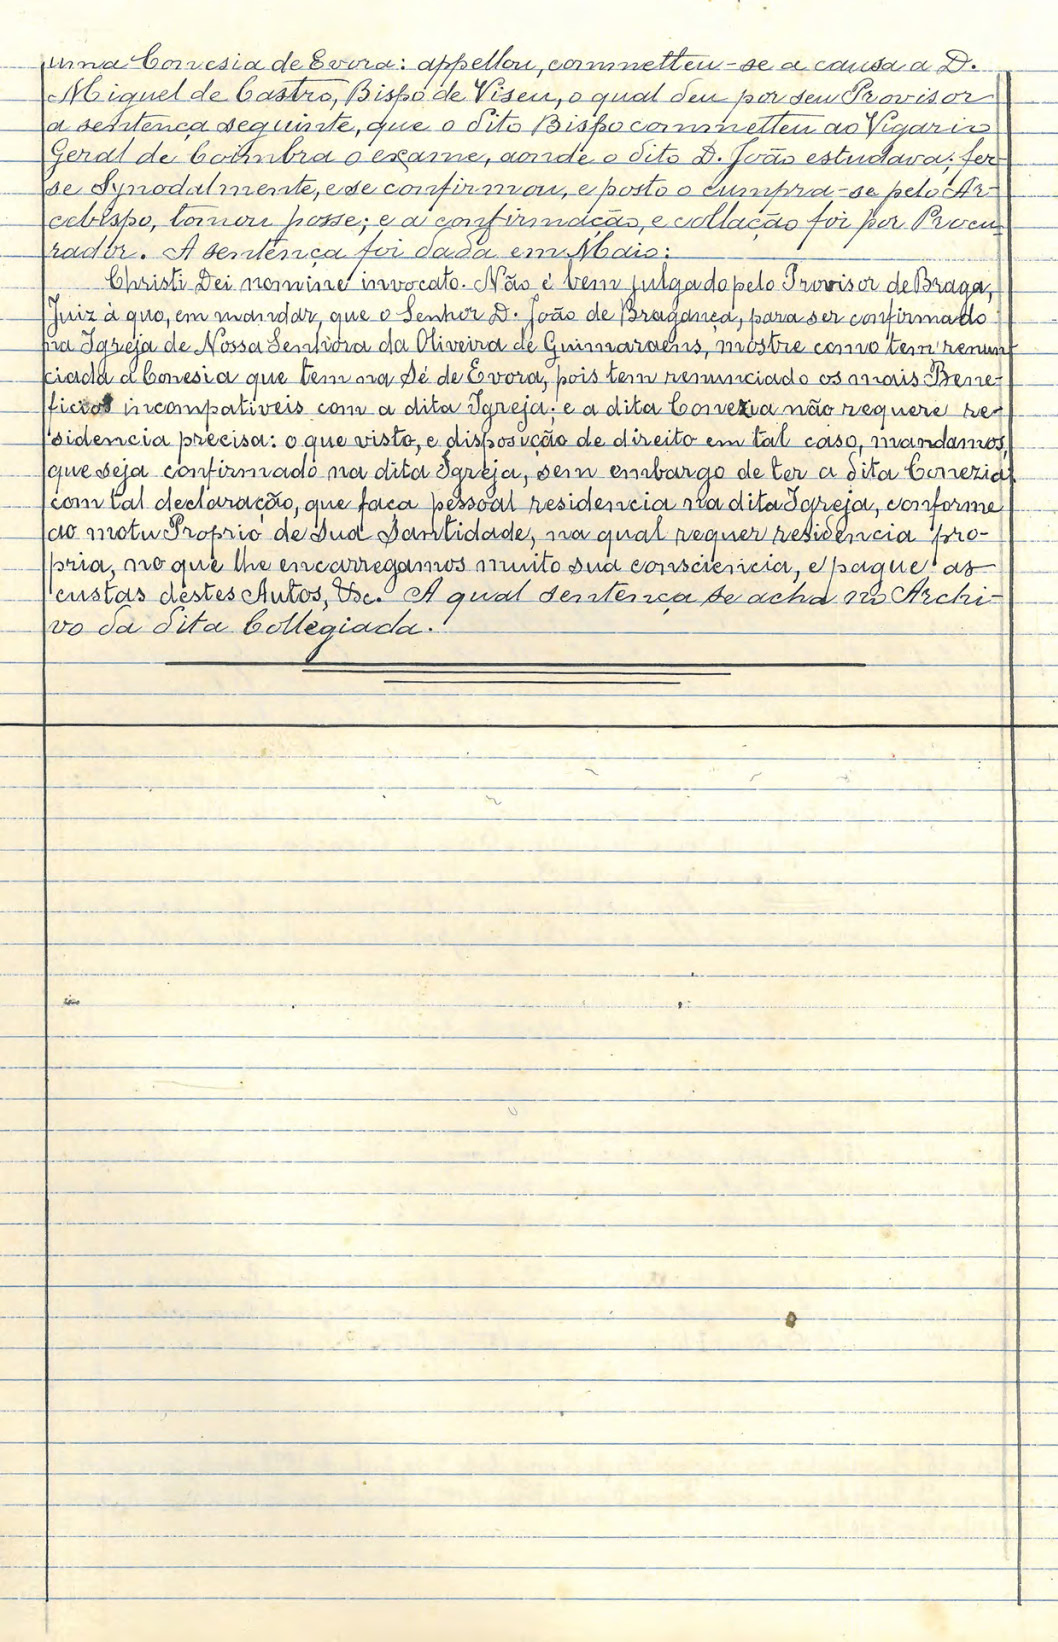 uma Conesia de Evora: appellou, commetteu-se a causa a D.
Miguel de Castro, Bispo de Viseu, o qual deu por seu Provisor
a sentença seguinte, que o dito Bispo commetteu ao Vigario
Geral de Coimbra o exame, aonde o dito D. João estudava; fez-
se Synodalmente, e se confirmou, e posto o cumpra-se pelo Ar-
cebispo, tomou posse; e a confirmação, e collação foi por Procu-
rador. A sentença foi dada em Maio:
Christi Dei nomine invocato. Não é bem julgado pelo Provisor de Braga,
Juiz à quo, em mandar, que o Senhor D. João de Bragança, para ser confirmado
na Igreja de Nossa Senhora da Oliveira de Guimaraens, mostre como tem renun-
ciada a Conesia que tem na Sé de Evora, pois tem renunciado os mais Bene-
ficios incompativeis com a dita Igreja; e a dita Conezia não requere re-
sidencia precisa: o que visto, e disposição de direito em tal caso, mandamos,
que seja confirmado na dita Igreja, sem embargo de ter a dita Conezia,
com tal declaração, que faca pessoal residencia na dita Igreja, conforme
ao motu Proprio de Sua Santidade, na qual requer residencia pro-
pria, no que lhe encarregamos muito sua consciencia, e pague as
custas destes Autos, &c. A qual sentença se acha no Archi-
vo da dita Collegiada.